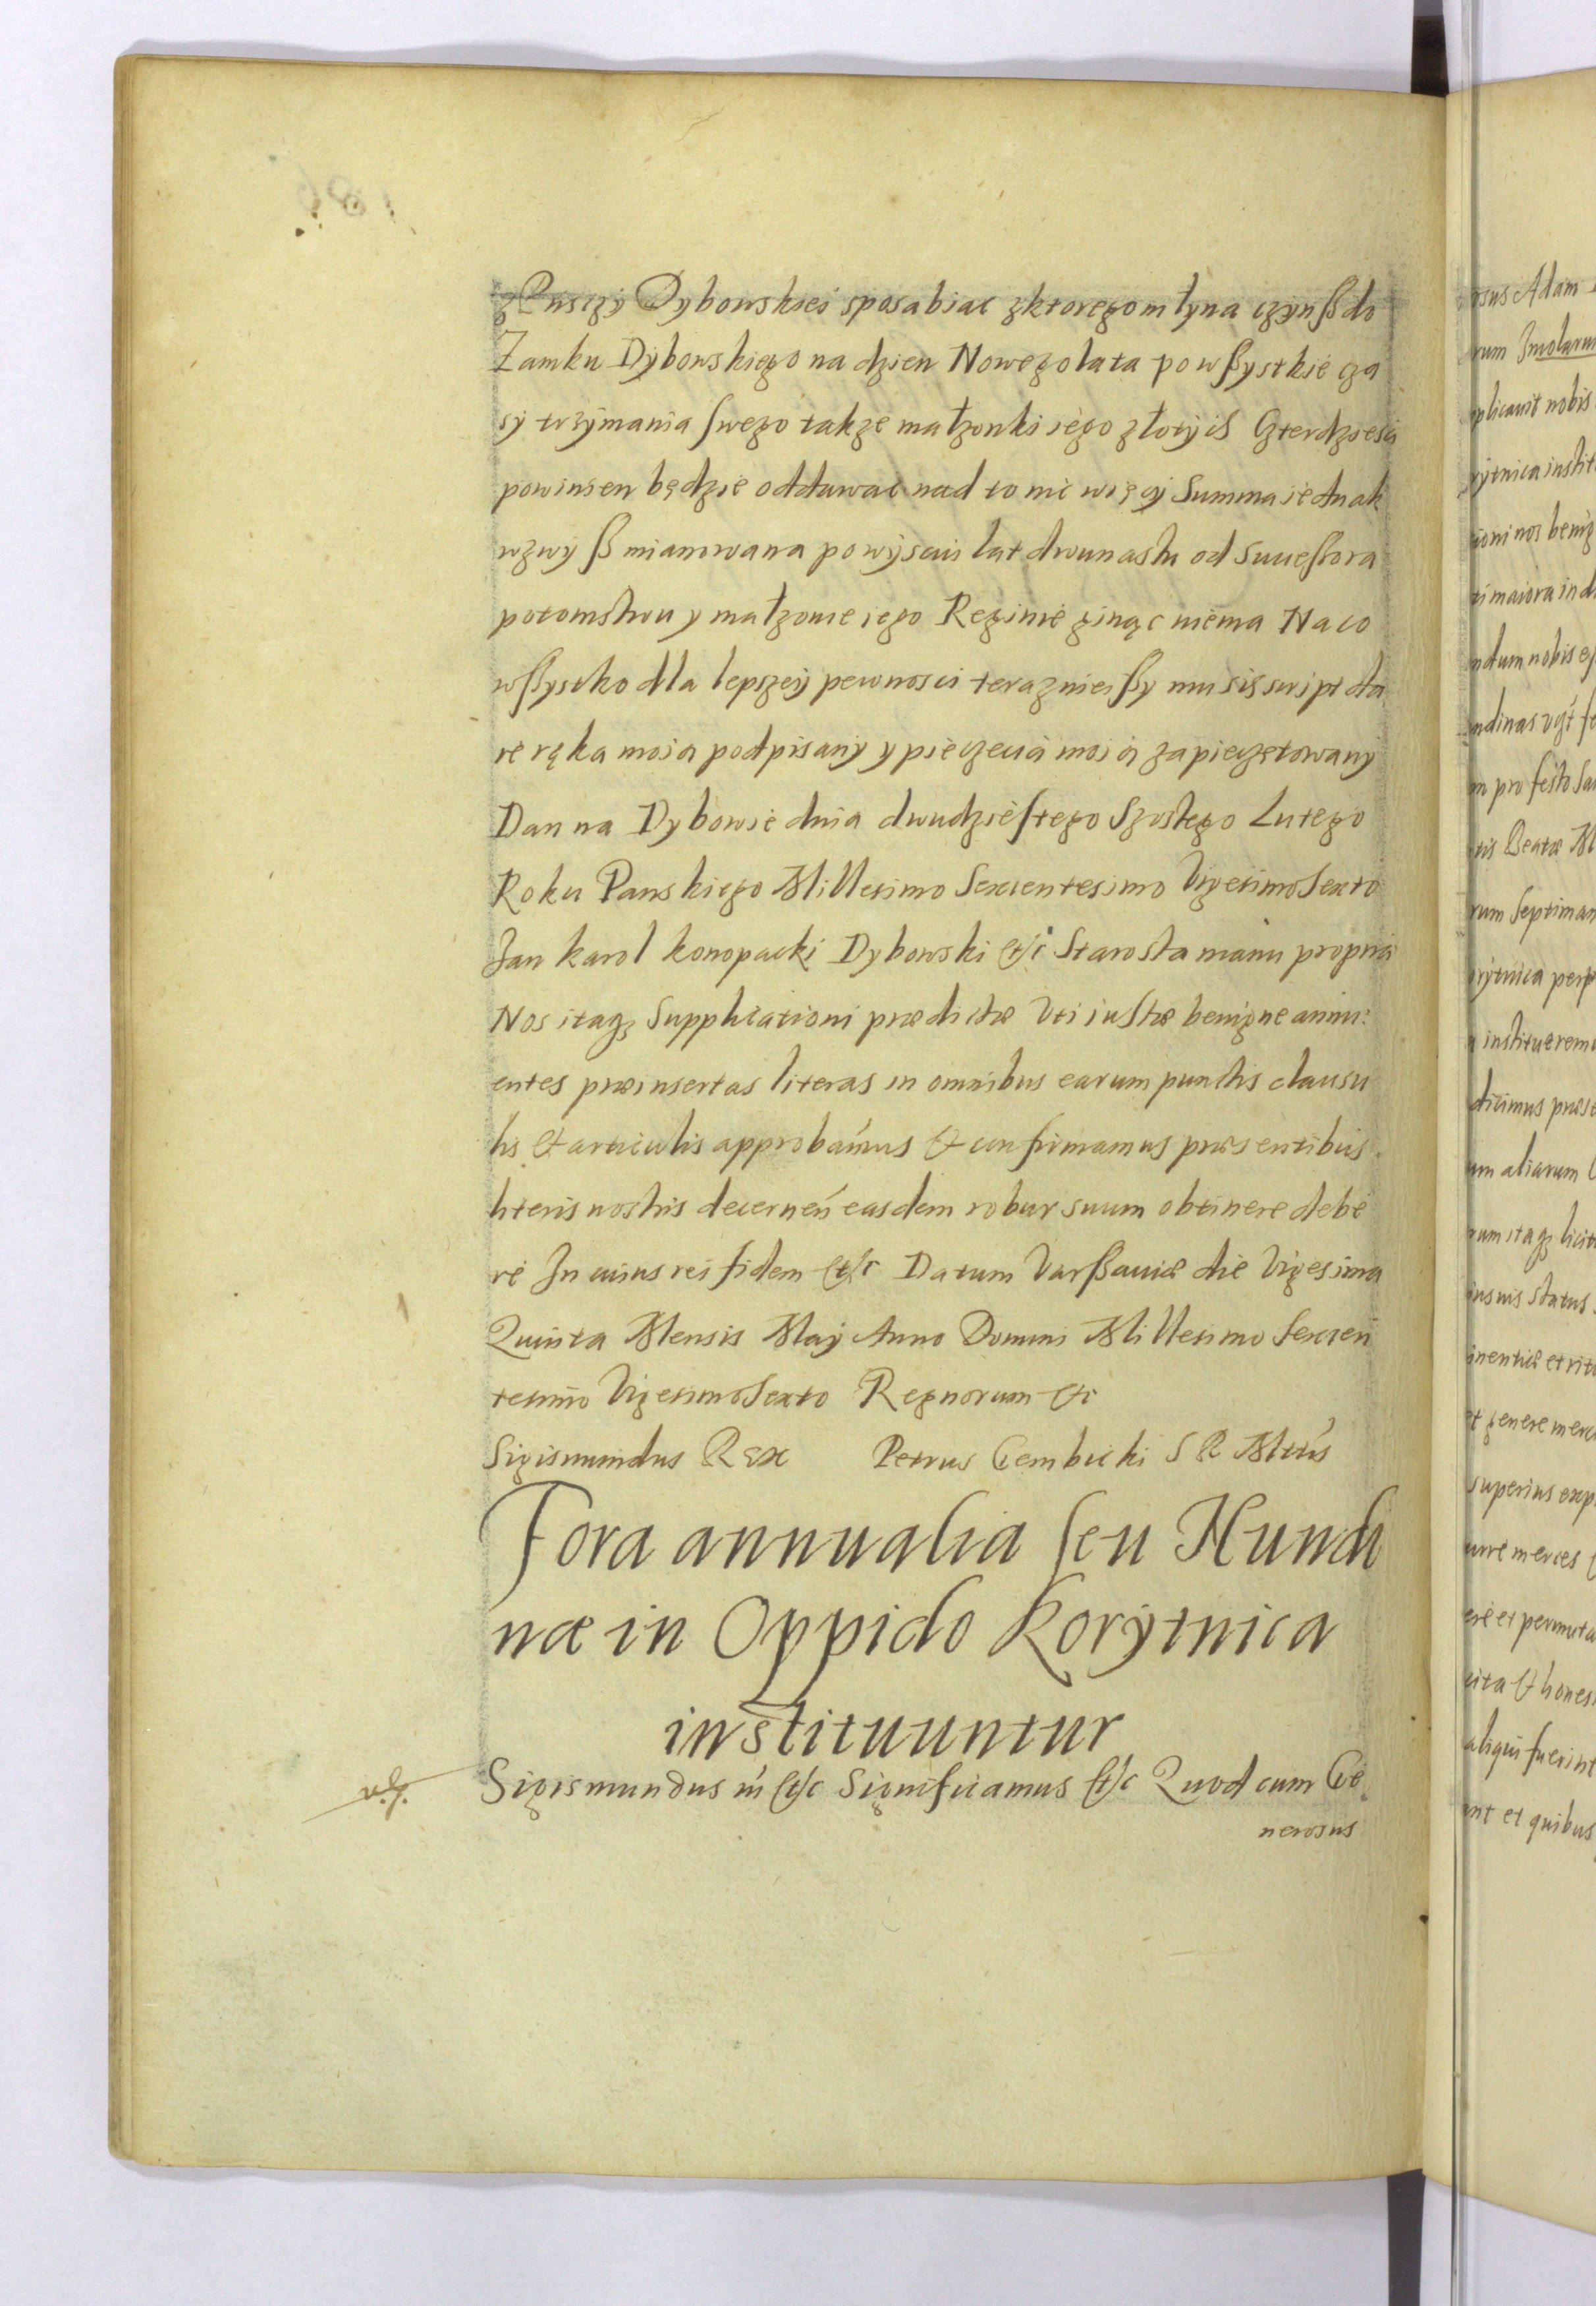 z Pusczÿ Dybowskieÿ sposabiac z ktorego młyna czynß do
Zamku Dÿbowskiego na dzien Nowego lata po wßystkie cza
sÿ trzÿmania swego takze małzonki iego złotÿch Czterdziesci
powinien będzie oddawac nad to nic więcÿ Summa iednak
wzwÿß mianowana po wÿsciu lat dwunastu od Successora
potomstwu y małzonce iego Reginie ginąc niema Na co
wßystko dla lepszeÿ pewnosci teraznieißy moi script da
ie ręka moia podpisanÿ y pieczecia moią zapieczętowanÿ
Dan na Dybowie dnia dwudziestego Szostego Lutego
Roku Panskiego Millesimo Sexcentesimo Vigesimo Sexto
Jan Karol Konopacki Dybowski etc Starosta manu propria
Nos itaq; Supplicationi prædictæ Vti iustæ benigne annu:
entes præinsertas literas in omnibus earum punctis clausu
lis et articulis approbamus et confirmamus præsentibus
literis nostris decernen easdem robur suum obtinere debe
re In cuius rei fidem etc Datum Varßaviæ die Vigesima
Quinta Mensis Maÿ Anno Domini Millesimo Sexcen
tesimo Vigesimo Sexto Regnorum etc
Sigismundus Rex Petrus Gembicki S R Mttis
Fora annualia seu Nundi
næ in Oppido Korÿtnica
instituuntur
Sigismundus III etc Significamus etc Quod cum Ge
nerosus
osus Adam
rum Jmolarum
plicavit nobis
rÿtnica instit
ioni nos benig
ti maiora in d
ndum nobis es
ndinas vgt fe
m pro festo San
tis Beatæ M
rum Septiman
orÿtnica perp
a institueremu
dicimus præse
um aliarum
rum itaq; licit
usuis status
inentiæ et rit
et genere merc
superius exp
urre merces
ere et permuta
cita et hones
aliqui fuerint
int et quibus